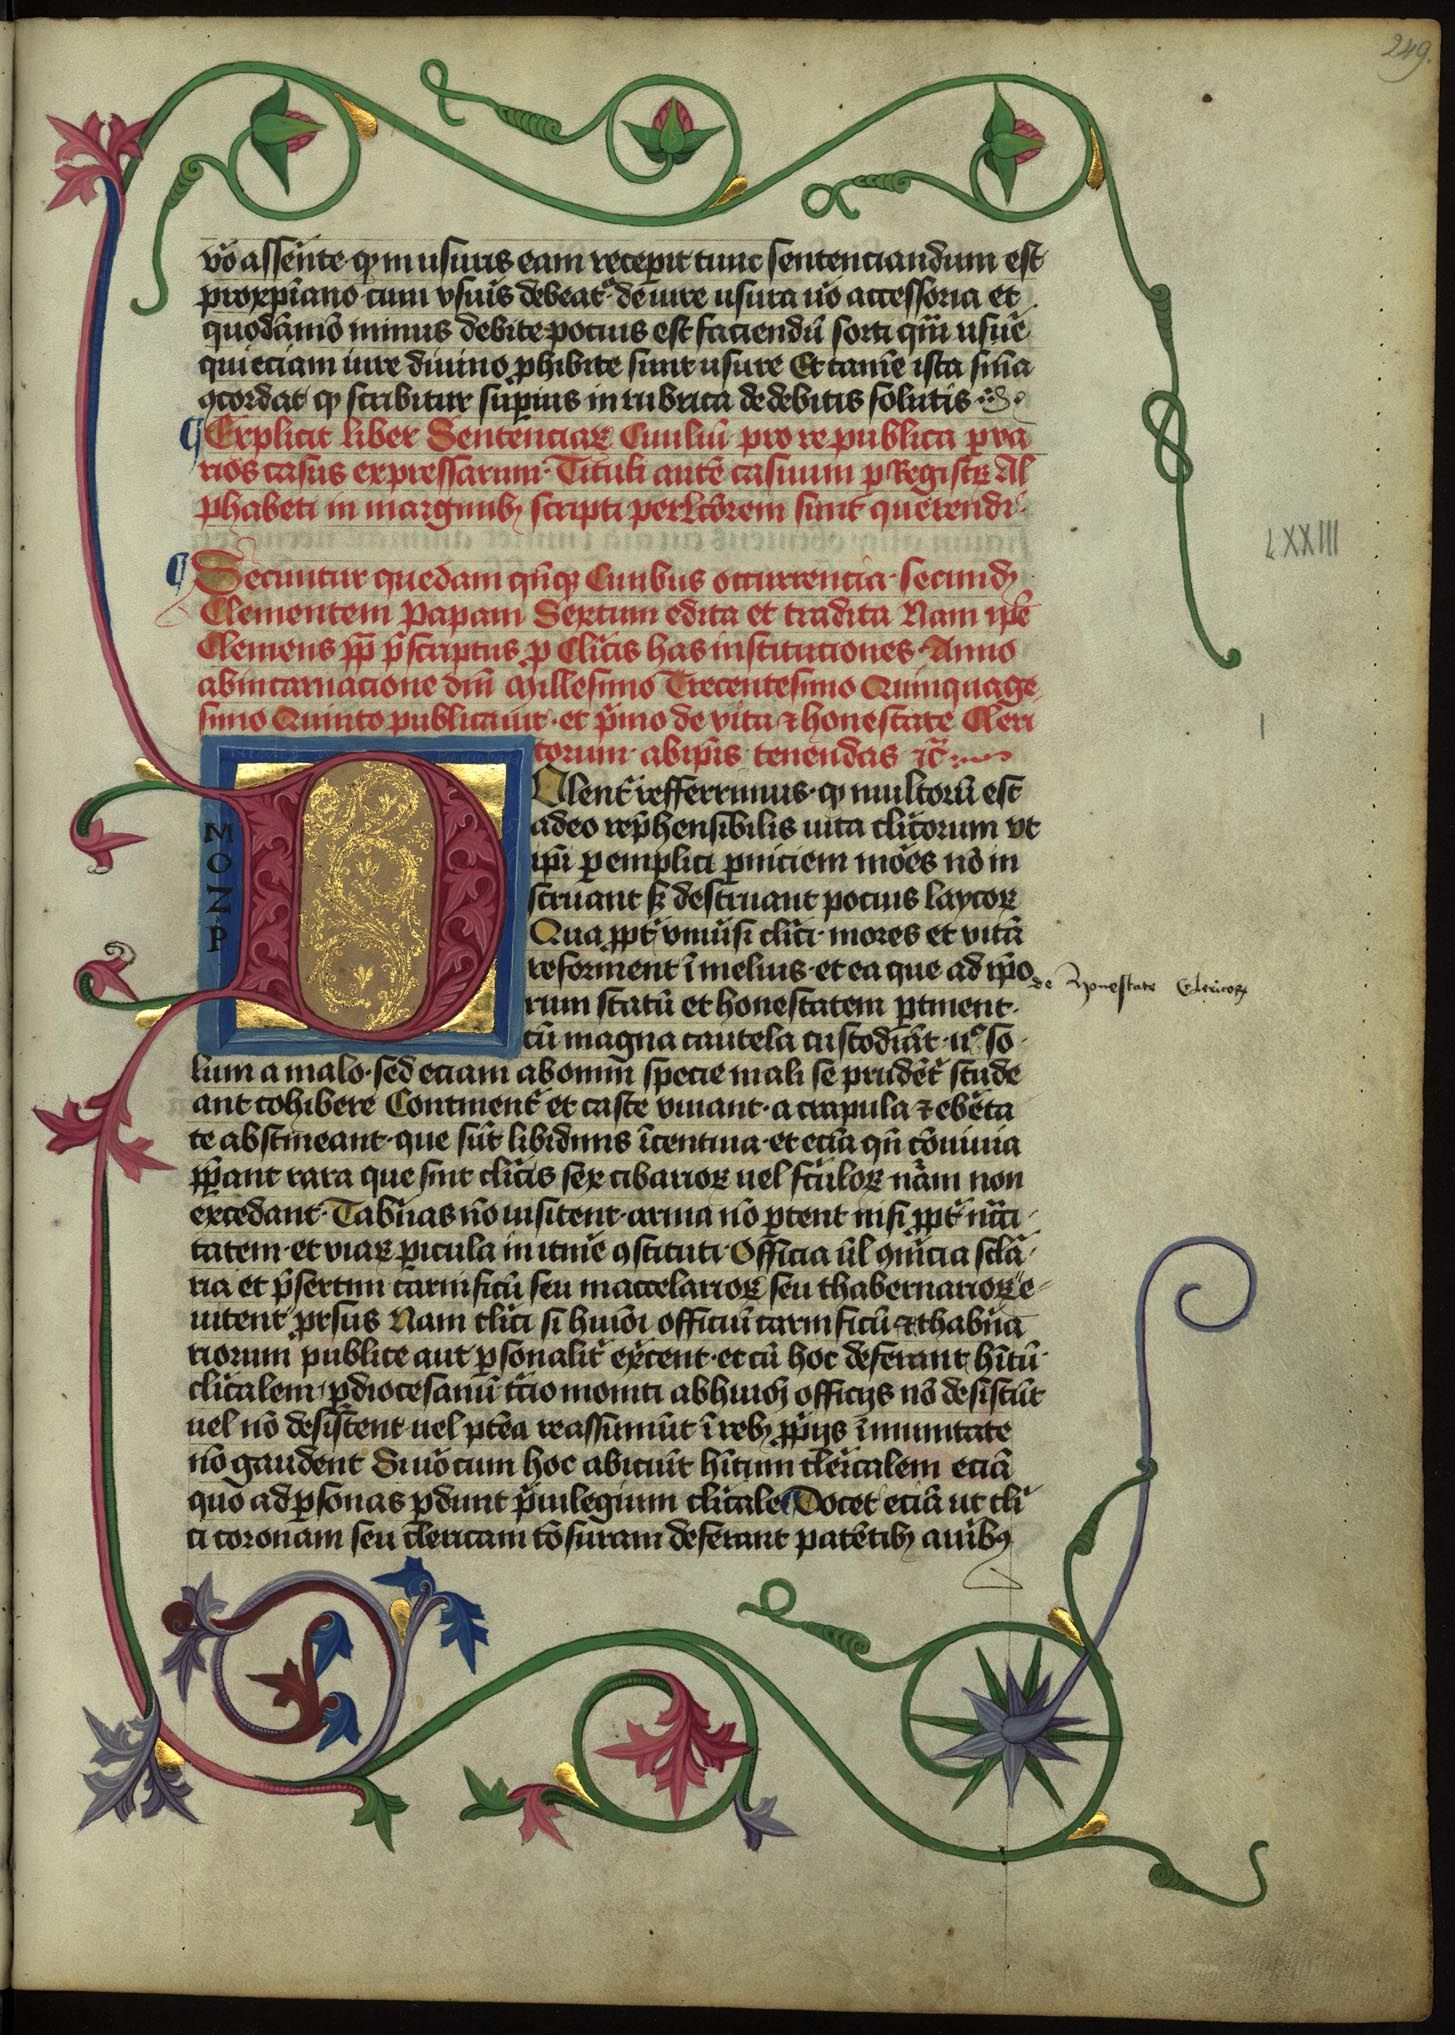 249.
vo assēnte qͥ in usuris eam recepit tunc sentenciandum est
pro xpiano cum vsuris debeat̄ᵘ de iure usura uͦ accessoria et
quodāmō minus debite pocius est faciendū sorti qᷓm usure
qui eciam iure diuino ꝓhibite sunt usure Et tamē ista sn̄ia
ꝯcordat ꝙ scribitur sup̄ius in rubrica de debitis solutis
Explicit liber Sentenciaꝝ Ciuiliū pro re publica ꝑ va
rios casus expressarum· Tituli autē casuum ꝑ Registꝝ Al
phabeti in marginibꝫ scripti per lc̄orem sunt querendi·
Secuntur quedam qn̄qꝫ Ciuibus occurrencia· secundꝫ
Clementem Papam Sextum edita et tradita Nam ip̄e
Clemens pp̄ p̄scriptus ꝓ Clīcis has instituciones· Anno
ab incarnacione dn̄i Millesimo Trecentesimo Quinquage
simo Quinto publicauit· et p̄mo de vita ⁊ honestate Cleri
corum· ab ip̄is tenendas ⁊c̄
Dolent̄ refferrimus· ꝙ multorū est
adeo rep̄hensibilis uita clīcorum vt
ip̄i ꝑ exempli ꝑniciem mōes nō in
struant sꝫ destruant pocius laycoꝝ
Qua ꝓpt̄ vniūsi clīci· mores et vitā
reforment ī melius· et ea que ad ip̄o
rum statū et honestatem ꝑtinent·
cū magna cautela custodiāt· nͦ so
lum a malo· sed eciam ab omni specie mali se prudēt̄ stude
ant cohibere Continent̄ et caste viuant· a crapula ⁊ ebrīeta
te abstineant· que sūt libidinis īcentiua· et eciā qn̄ cōuiuia
p̄pant rara que sint clīcis sex cibarioꝝ uel fercūloꝝ nūm non
excedant· Tabn̄as nō uisitent· arma nō ꝑtent nisi ꝓpt̄ nc̄ci
tatem· et viaꝝ ꝑicula in itin̄e ꝯstituti· Officia ūl ꝯmērcia sclā
ria et p̄sertim carnificū seu maccelarioꝝ seu thabernarioꝝ e
uitent ꝓrsus Nam clīci si huiōi officiū carnificū ⁊ thabn̄a
riorum publice aut ꝑsonalit̄ exc̄ent· et cū hoc deferant hītū
clīcalem· ꝑ diocesanū t̄cio moniti ab huiꝯ officijs nō desistūt
uel nō desistent uel ptēa reassumūt ī rebꝫ ꝓprijs īmunitate
nō gaudent Si uͦ cum hoc abiciūt hītum clericalem eciā
quo ad ꝑsonas ꝑdunt p̄uilegium clīcale Docet eciā ut clī
ci coronam seu clericam tōsuram deferant patētibꝫ auribꝯ
M
O
Z
P
de Honestate Clericoꝝ
LXXIII